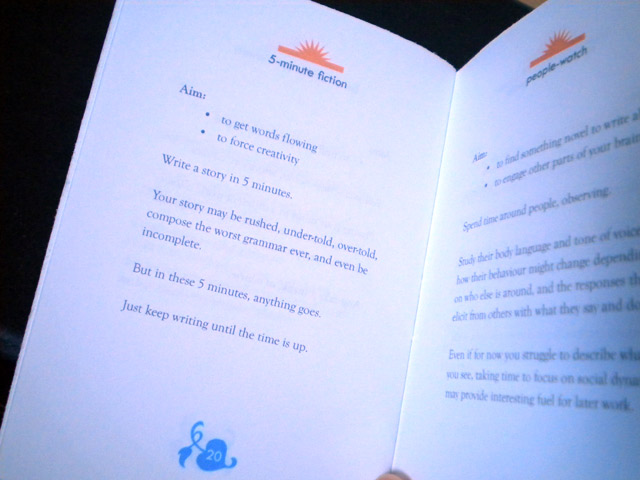 5-minute fiction
Aim:
• to get words flowing
• to force creativity
Write a story in 5 minutes.
Your story may be rushed, under-told, over-told,
compose the worst grammar ever, and even be
incomplete.
But in these 5 minutes, anything goes.
Just keep writing until the time is up.
20
people-watch
Aim:
• to find something novel to write
• to engage other parts of your brain
Spend time around people, observing.
Study their body language and tone of voice
how their behaviour might change
on who else is around, and the responses
elicit from others with what they say and
Even if for now you struggle to describe
you see, taking time to focus on social
may provide interesting fuel for later work.